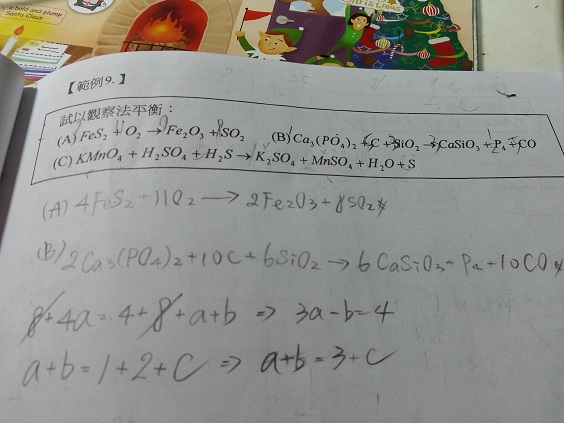 a bold and plump
Santa Claus
【範例9.】
試以觀察法平衡：
(A) FeS₂ + O₂ → Fe₂O₃ + SO₂ (B) Ca₃(PO₄)₂ + C + SiO₂ → CaSiO₃ + P₄ + CO
(C) KMnO₄ + H₂SO₄ + H₂S → K₂SO₄ + MnSO₄ + H₂O + S
(A) 4FeS₂ + 11O₂ → 2Fe₂O₃ + 8SO₂
(B) 2Ca₃(PO₄)₂ + 10C + 6SiO₂ → 6CaSiO₃ + P₄ + 10CO
8 + 4a = 4 + 8 + a + b ⇒ 3a - b = 4
a + b = 1 + 2 + C ⇒ a + b = 3 + C